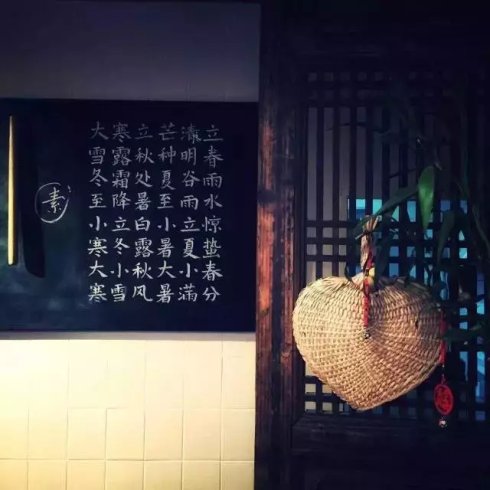 立春雨水惊蛰春分
清明谷雨立夏小满
芒种夏至小暑大暑
立秋处暑白露秋风
寒露霜降立冬小雪
大雪冬至小寒大寒
素